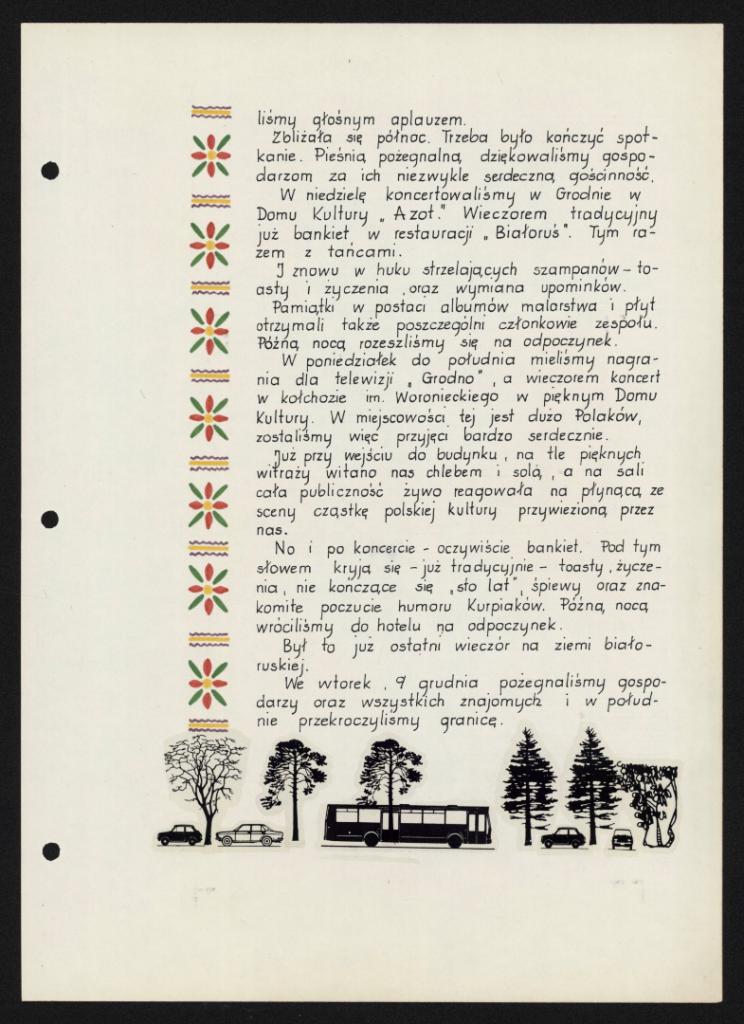 liśmy głośnym aplauzem.
Zbliżała się północ. Trzeba było kończyć spot-
kanie. Pieśnią pożegnalną dziękowaliśmy gospo-
darzom za ich niezwykle serdeczną gościnność.
W niedzielę koncertowaliśmy w Grodnie w
Domu Kultury „Azot." Wieczorem tradycyjny
już bankiet w restauracji „Białoruś". Tym ra-
zem z tańcami.
I znowu w huku strzelających szampanów - to-
asty i życzenia oraz wymiana upominków.
Pamiątki w postaci albumów malarstwa i płyt
otrzymali także poszczególni członkowie zespołu.
Późną nocą rozeszliśmy się na odpoczynek.
W poniedziałek do południa mieliśmy nagra-
nia dla telewizji „Grodno", a wieczorem koncert
w kołchozie im. Woronieckiego w pięknym Domu
Kultury. W miejscowości tej jest dużo Polaków,
zostaliśmy więc przyjęci bardzo serdecznie.
Już przy wejściu do budynku, na tle pięknych
witraży witano nas chlebem i solą, a na sali
cała publiczność żywo reagowała na płynącą ze
sceny cząstkę polskiej kultury przywiezioną przez
nas.
No i po koncercie - oczywiście bankiet. Pod tym
słowem kryją się - już tradycyjnie - toasty, życze-
nia, nie kończące się „sto lat", śpiewy oraz zna-
komite poczucie humoru Kurpiaków. Późną nocą
wróciliśmy do hotelu na odpoczynek.
Był to już ostatni wieczór na ziemi biało-
ruskiej.
We wtorek, 9 grudnia pożegnaliśmy gospo-
darzy oraz wszystkich znajomych i w połud-
nie przekroczyliśmy granicę.